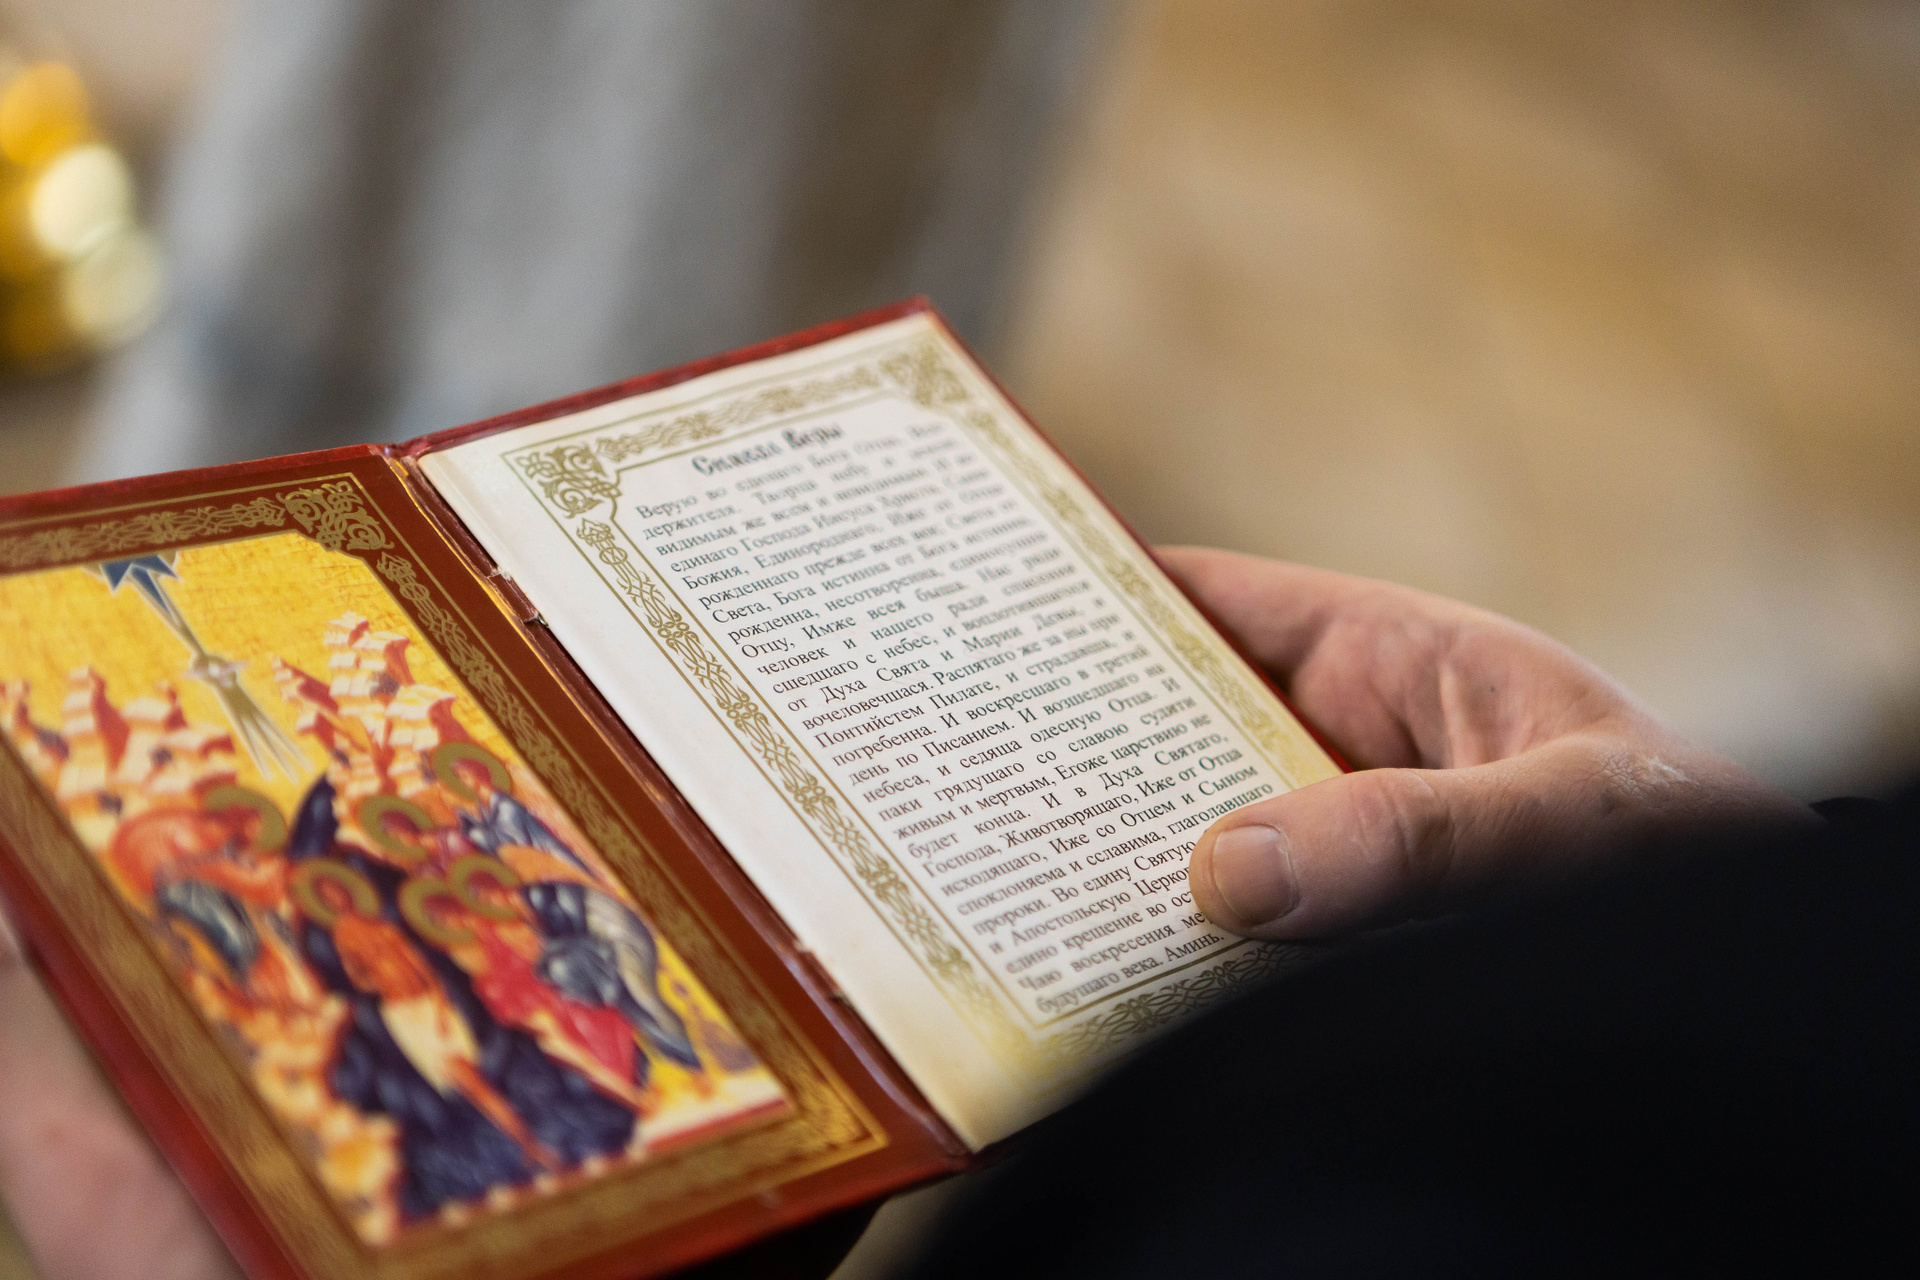 Символ Веры
Верую во единаго Бога Отца, Все-
держителя, Творца небу и земли,
видимым же всем и невидимым. И во
единаго Господа Иисуса Христа, Сына
Божия, Единороднаго, Иже от Отца
рожденнаго прежде всех век; Света от
Света, Бога истинна от Бога истинна,
рожденна, несотворенна, единосущна
Отцу, Имже вся быша. Нас ради
человек и нашего ради спасения
сшедшаго с небес, и воплотившагося
от Духа Свята и Марии Девы, и
вочеловечшася. Распятаго же за ны при
Понтийстем Пилате, и страдавша, и
погребенна. И воскресшаго в третий
день по Писанием. И возшедшаго на
небеса, и седяща одесную Отца. И
паки грядущаго со славою судити
живым и мертвым, Егоже царствию не
будет конца. И в Духа Святаго,
Господа, Животворящаго, Иже от Отца
исходящаго, Иже со Отцем и Сыном
споклоняема и сславима, глаголавшаго
пророки. Во едину Святую
и Апостольскую Церков
едино крещение во ост
Чаю воскресения ме
будущаго века. Аминь.